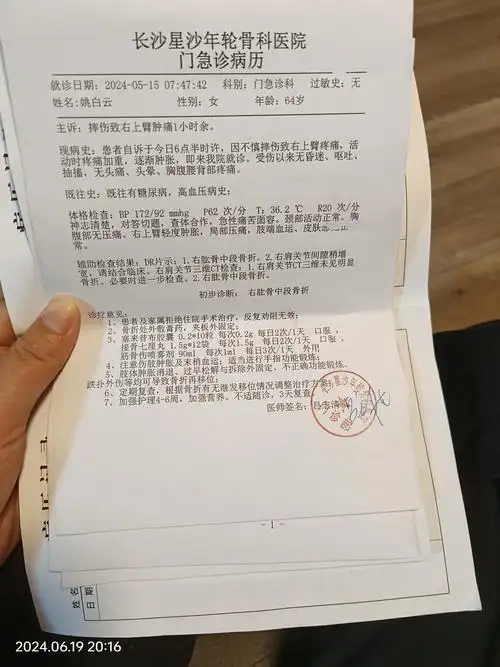 长沙星沙年轮骨科医院
门急诊病历
就诊日期：2024-05-15 07:47:42 科别：门急诊科 过敏史：无
姓名：姚白云 性别：女 年龄：64岁
主诉：摔伤致右上臂肿痛1小时余。
现病史：患者自诉于今日6点半时许，因不慎摔伤致右上臂疼痛，活
动时疼痛加重，逐渐肿胀，即来我院就诊。受伤以来无昏迷、呕吐、
抽搐，无头痛、头晕、胸腹腰背部疼痛。
既往史：既往有糖尿病，高血压病史；
体格检查：BP 172/92 mmhg P62 次/分 T：36.2 ℃ R20 次/分
神志清楚，对答切题，查体合作，急性痛苦面容。颈部活动正常。胸
腹部无压痛。右上臂轻度肿胀，局部压痛，肢端血运、皮肤感
常。
辅助检查结果：DR片示：1.右肱骨中段骨折。2.右肩关节间隙稍增
宽，请结合临床。右肩关节三维CT检查：1.右肩关节CT三维未见明显
骨折。必要时进一步检查。2.右肱骨中段骨折。
初步诊断：右肱骨中段骨折
诊疗意见：
1、患者及家属拒绝住院手术治疗，反复劝阻无效；
2、骨折处外敷膏药，夹板外固定；
3、塞来昔布胶囊 0.2*10粒 每次0.2g 每日2次/1天 口服，
接骨七厘丸 1.5g*12袋 每次1.5g 每日2次/1天 口服，
筋骨伤喷雾剂 90ml 每次1ml 每日3次/1天 外用
4、注意伤肢肿胀及末梢血运；适当进行手指功能锻炼；
5、肢体肿胀消退、过早松解与拆除外固定、不正确功能锻炼、
跌扑外伤等均可导致骨折再移位；
6、定期复查，根据骨折有无继发移位情况调整治疗方
7、加强护理4-6周，加强营养。不适随诊，3天复查。
医师签名：
- 1 -
姓名
日期
2024.06.19 20:16